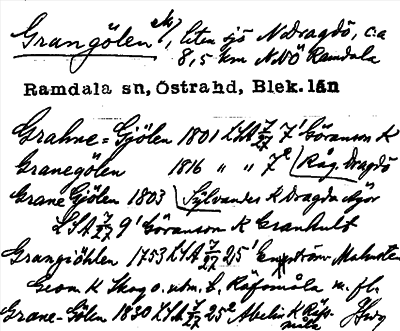 Grangölen, liten sjö N Dragdö, c:a
8,5 km NNÖ Ramdala
Ramdala sn, Östrahd, Blek. län
Grahne-Gjölen 1801 LSA 7/27 7¹ Göranson K
Granegölen 1816 " " 7² Råg Dragdö
Grane Gjölen 1803 Sylvander K Dragda ägor
LSA 7/27 9¹ Göranson K Granhult
Grangiöhlen 1753 LSA 7/27 25¹ Malmsten
Geom K Skog o. utm. t. Räfsmåla m. fl.
Grane-Gölen 1830 LSA 7/27 25² Abelin K Räfs-
måla